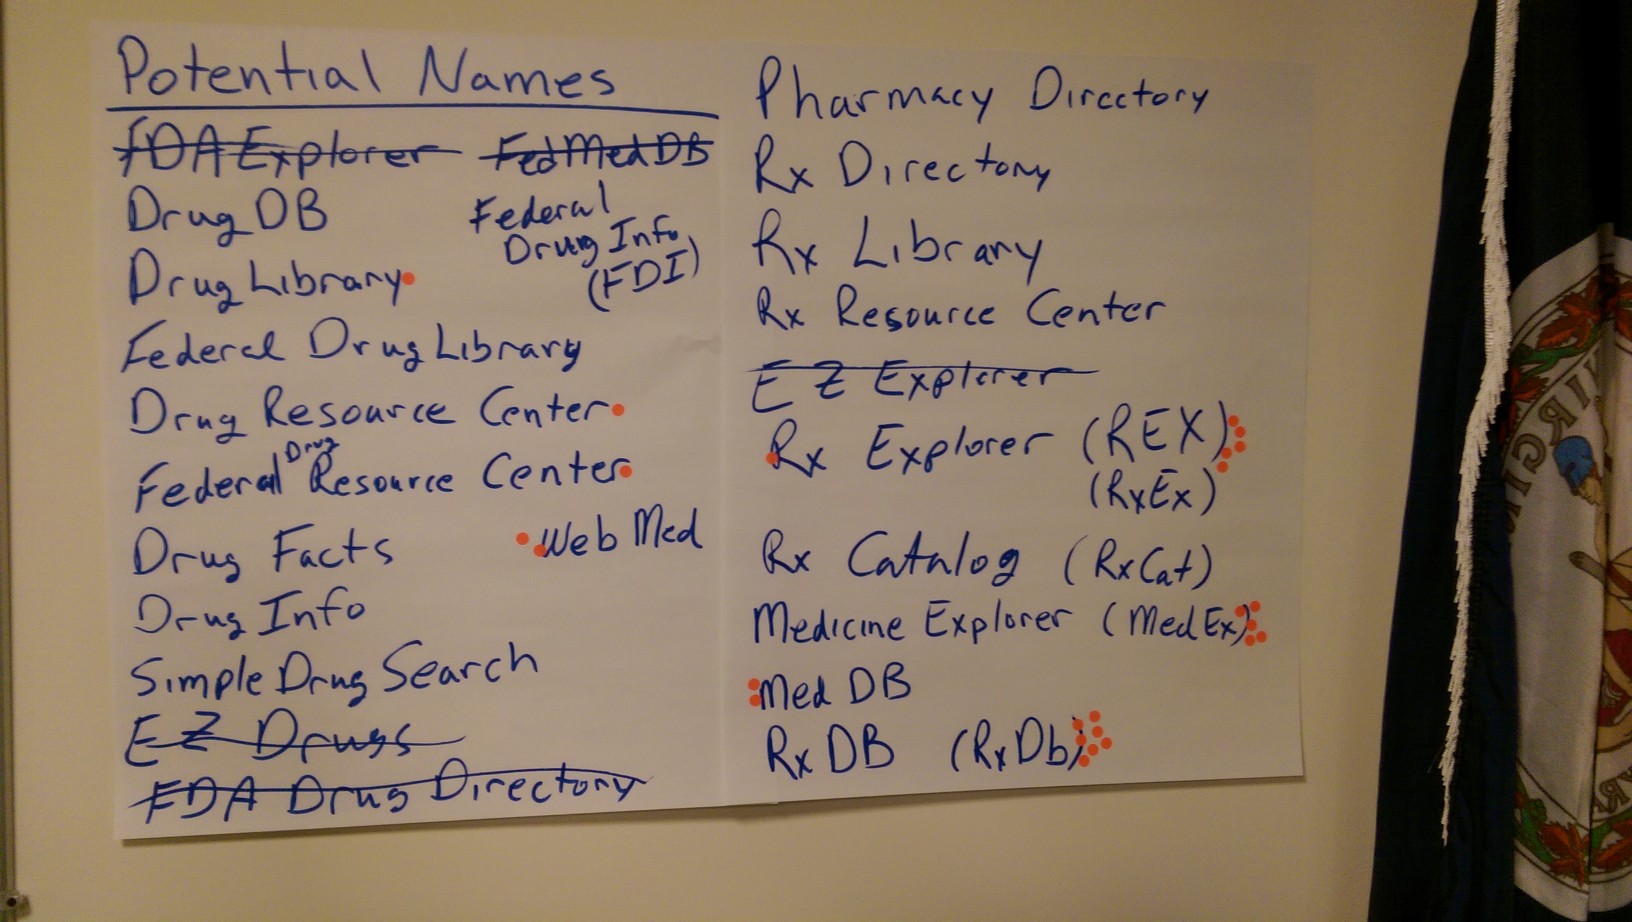 Potential Names
FDA Explorer FedMedDB
Drug DB
Federal
Drug Info
(FDI)
Drug Library
Federal Drug Library
Drug Resource Center
Federal Drug Resource Center
Drug Facts
Web Med
Drug Info
Simple Drug Search
EZ Drugs
FDA Drug Directory
Pharmacy Directory
Rx Directory
Rx Library
Rx Resource Center
EZ Explorer
Rx Explorer (REX)
(RxEx)
Rx Catalog (RxCat)
Medicine Explorer (MedEx)
Med DB
RxDB (RxDb)